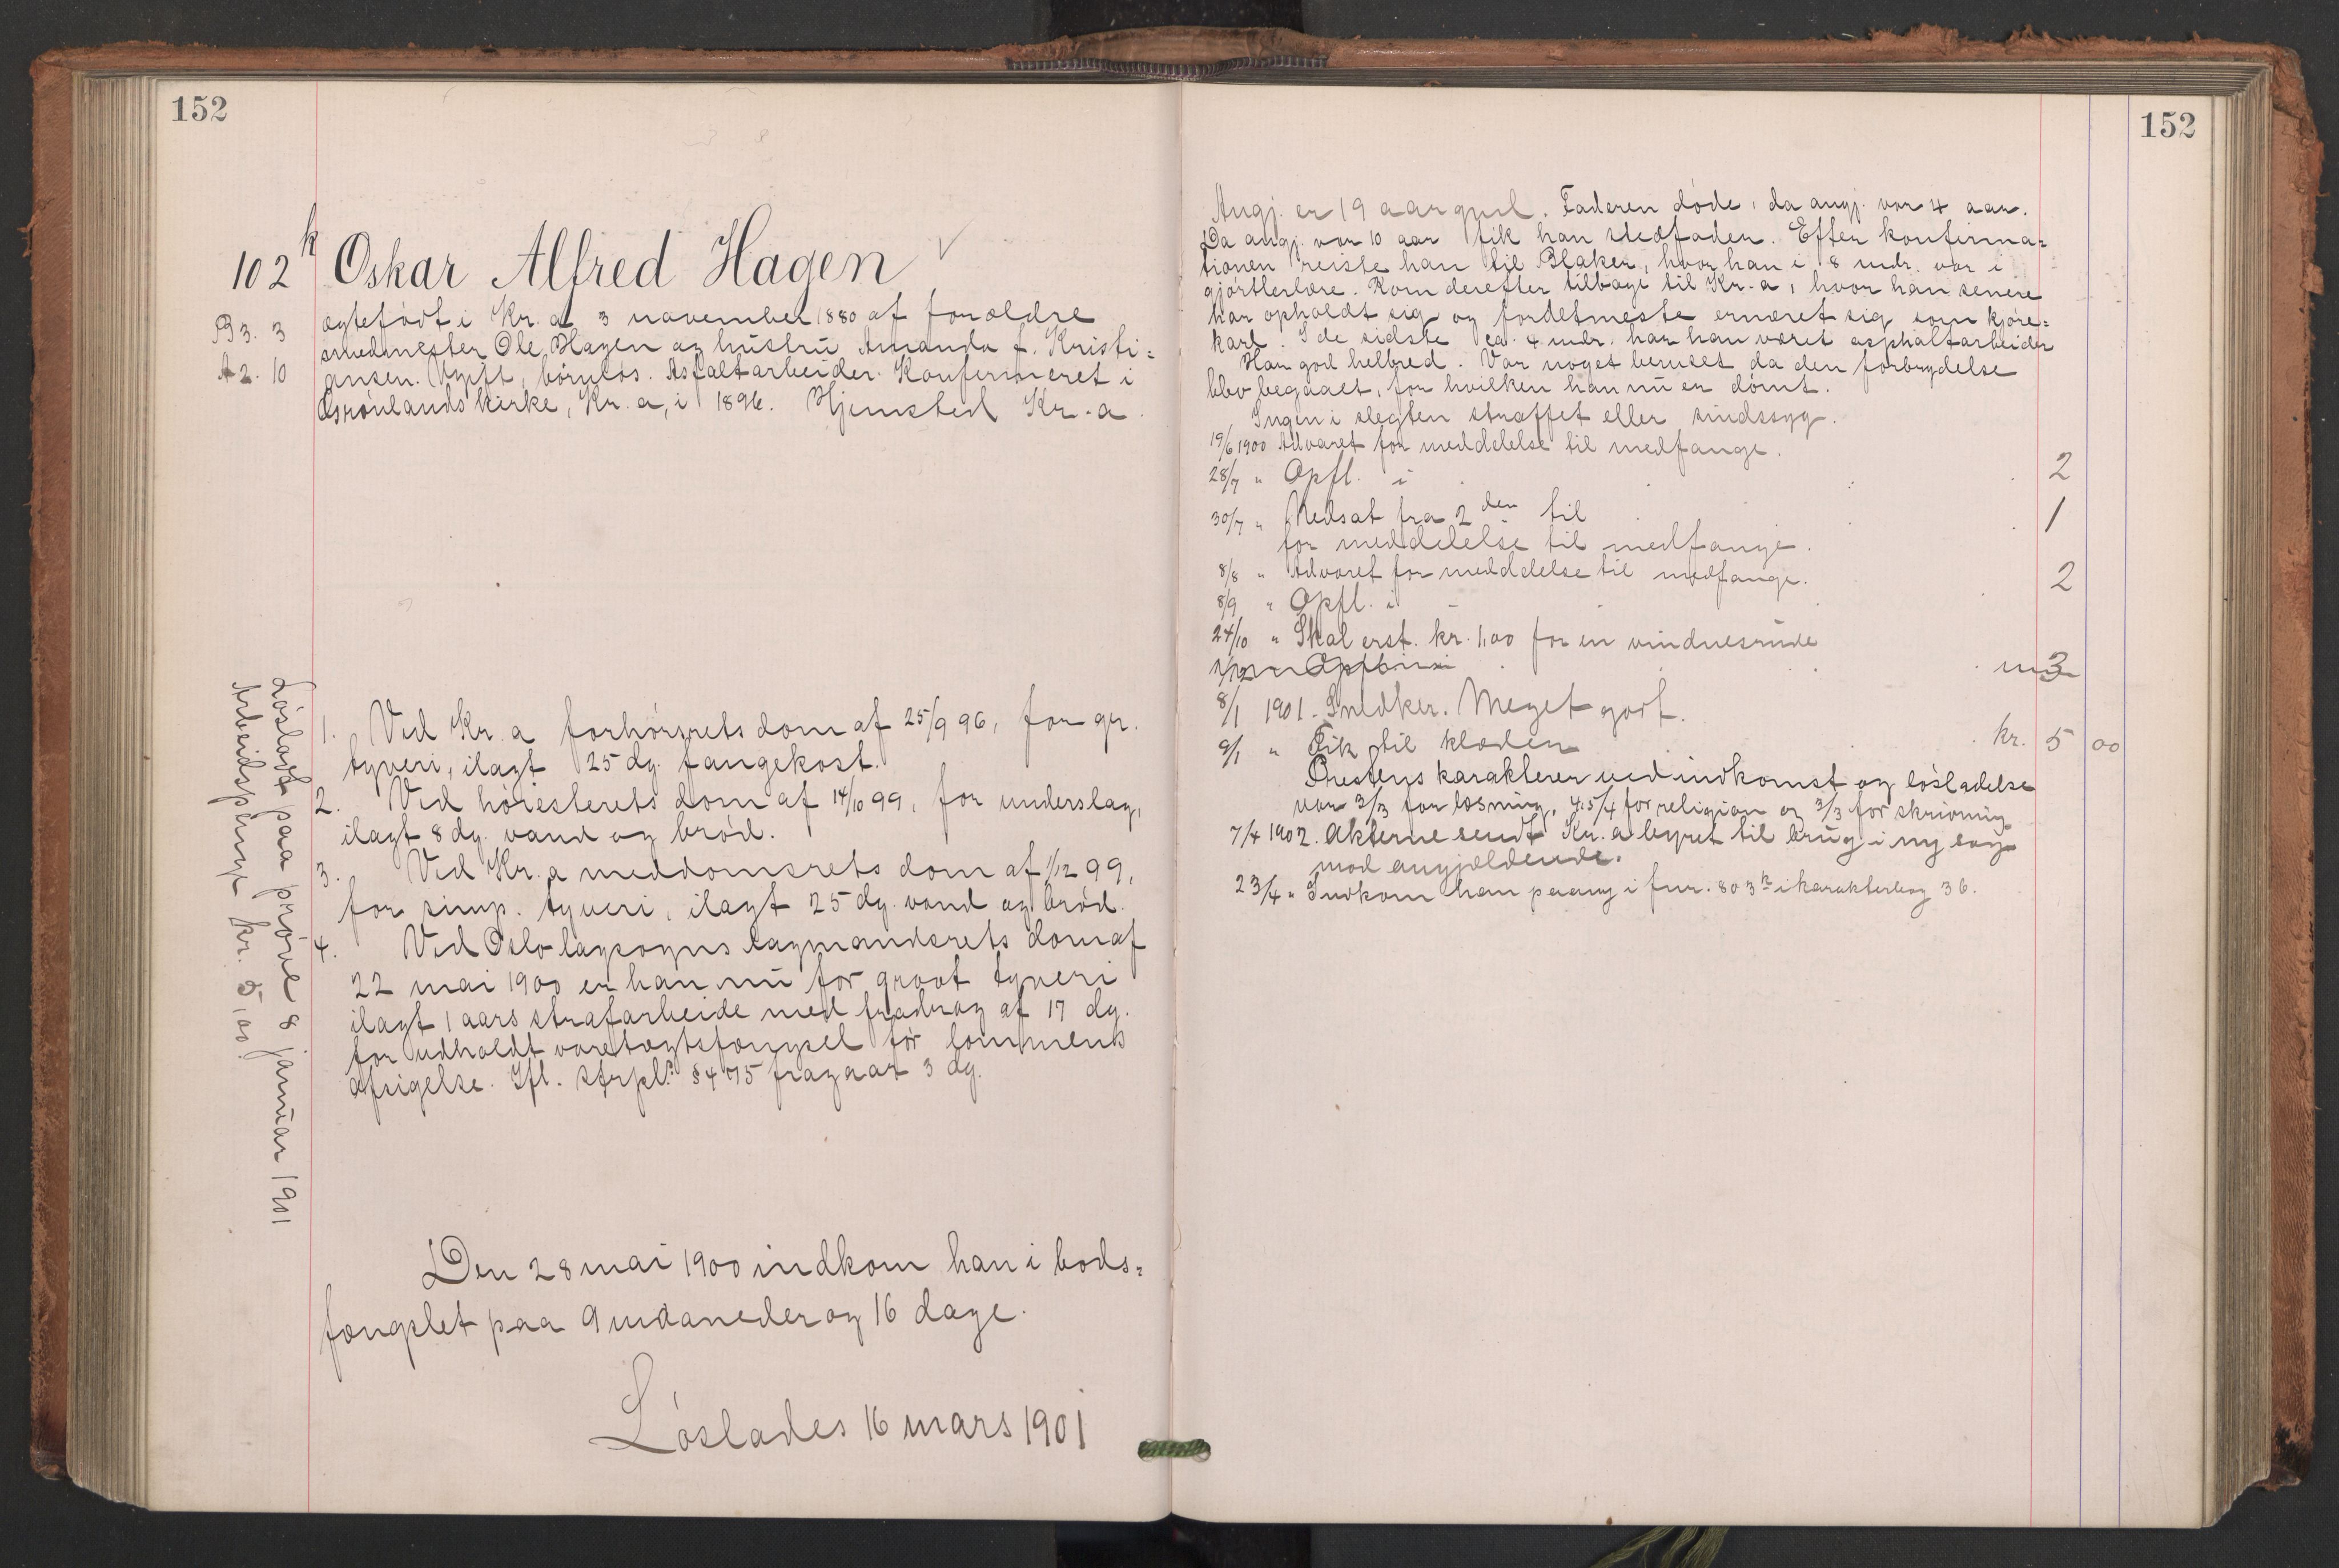 152
102 k Oskar Alfred Hagen
B 3. 3
A 2. 10
ægtefødt i Kr.a 3 november 1880 af forældre
smedmester Ole Hagen og hustru Amanda f. Kristi=
ansen. Ugift, børnløs. Asfaltarbeider. Konfirmeret i
Grønlands kirke, Kr.a, i 1896. Hjemsted Kr.a.
Løsladt paa prøve 8 januar 1901
Arbeidspenge kr. 5,00.
1. Ved Kr.a forhørsrets dom af 25/9 96, for gr.
tyveri, ilagt 25 dg. fangekost.
2. Ved høiesterets dom af 14/10 99, for underslag,
ilagt 8 dg. vand og brød.
3. Ved Kr.a meddomsrets dom af 1/12 99,
for simp. tyveri, ilagt 25 dg. vand og brød.
4. Ved Oslo lagsogns lagmandsrets dom af
22 mai 1900 er han nu for grovt tyveri
ilagt 1 aars strafarbeide med fradrag af 17 dg.
for udholdt varetægtsfængsel før dommens
afsigelse. Ifl. strpl. § 475 fragaar 3 dg.
Den 28 mai 1900 indkom han i bods=
fængslet paa 9 maaneder og 16 dage.
Løslades 16 mars 1901
152
Angj. er 19 aar gml. Faderen døde, da angj. var 4 aar.
Da angj. var 10 aar fik han stedfader. Efter konfirma=
tionen reiste han til Blaker, hvor han i 8 mdr. var i
gjørtlerlære. Kom derefter tilbage til Kr.a, hvor han senere
har opholdt sig og fordetmeste ernæret sig som kjøre=
karl. I de sidste ca. 4 mdr. har han været asphaltarbeider
Har god helbred. Var noget beruset da den forbrydelse
blev begaaet, for hvilken han nu er dømt.
Ingen i slegten straffet eller sindssyg.
19/6 1900 Advaret for meddelelse til medfange.
28/7 " Opfl. i 2
30/7 " Nedsat fra 2den til 1
for meddelelse til medfange.
8/8 " Advaret for meddelelse til medfange.
8/9 " Opfl. i 2
24/10 " Skal erst. kr. 1,00 for en vinduesrude
1/12 " Opfl. i 3
8/1 1901. Snedker. Meget godt.
9/1 " Fik til klæder kr. 5 00
Prestens karakterer ved indkomst og løsladelse
var 3/3 for læsning, 4.5/4 for religion og 3/3 for skrivning
7/4 1902. Akterne sendt Kr.a byret til brug i ny sag
mod angjældende.
23/4 " Indkom han paany i fnr. 803 k i karakterbog 36.